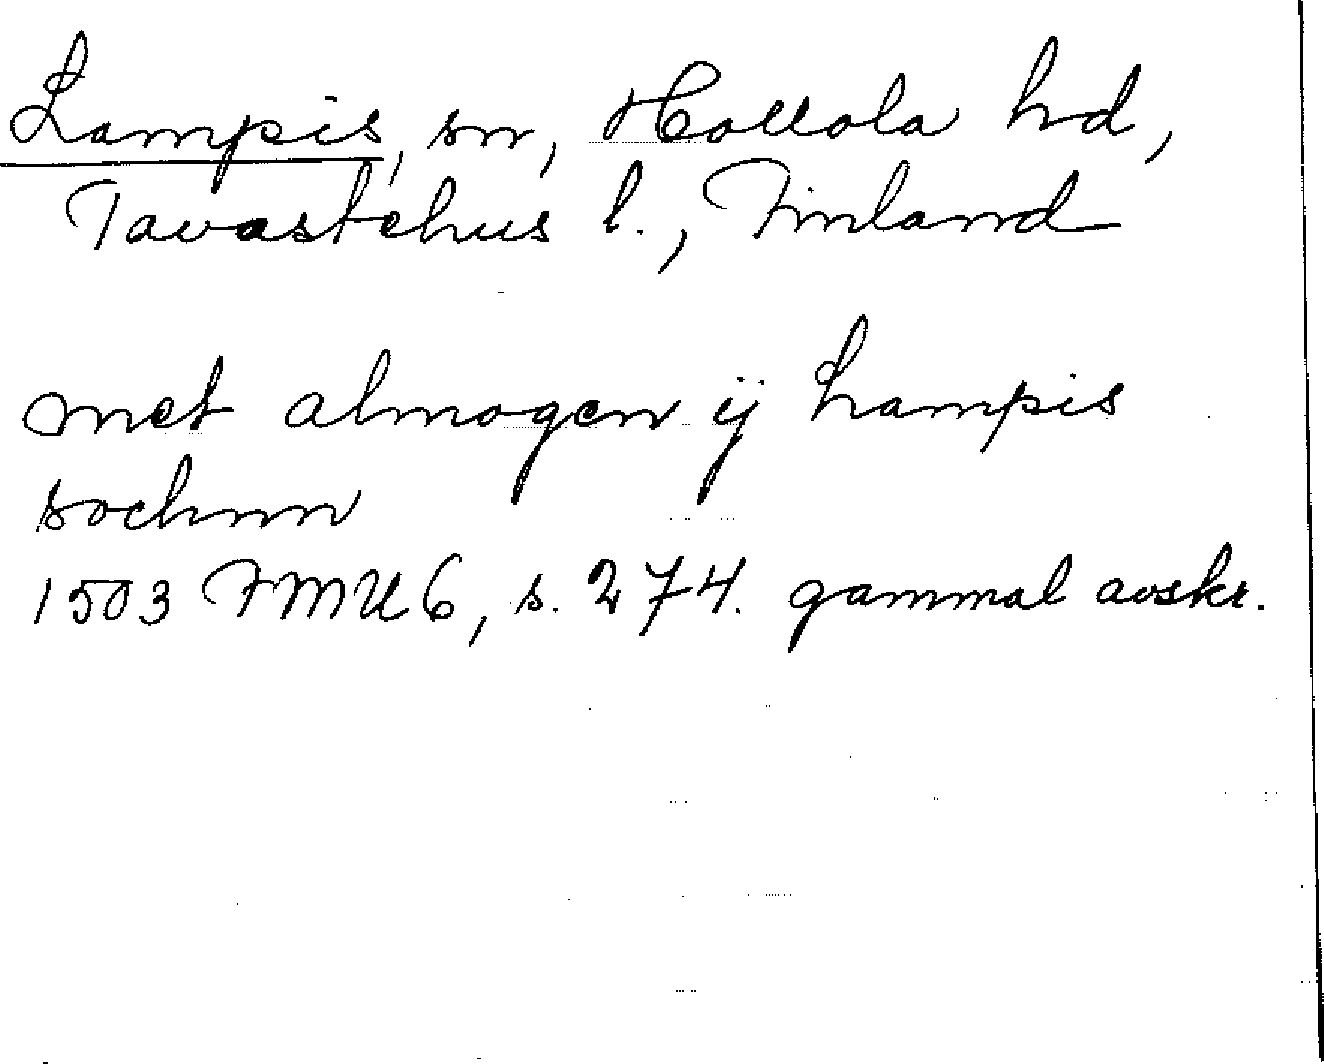 Lampis, sn, Hollola hd,
Tavastehus l., Finland
met almogen ij Lampis
sochnn
1503 FMU 6, s. 274. gammal avskr.